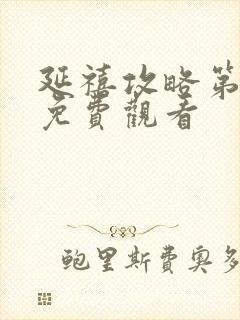 延禧攻略第
免費觀看
鲍里斯費奥多